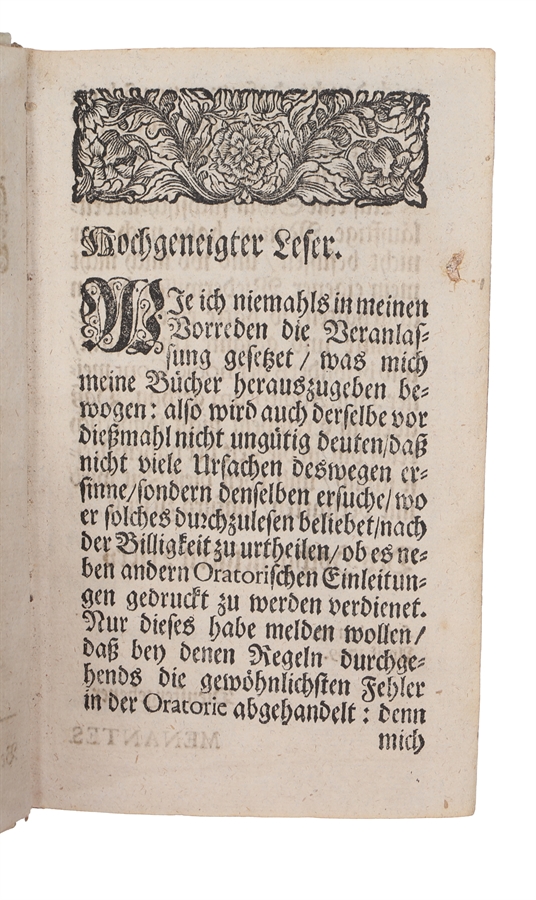 Hochgeneigter Leser.
WJe ich niemahls in meinen
Vorreden die Veranlas-
sung gesetzet / was mich
meine Bücher herauszugeben be-
wogen: also wird auch derselbe vor
dießmahl nicht ungütig deuten/daß
nicht viele Ursachen deswegen er-
sinne/sondern denselben ersuche/wo
er solches durchzulesen beliebet/nach
der Billigkeit zu urtheilen/ob es ne-
ben andern Oratorischen Einleitun-
gen gedruckt zu werden verdienet.
Nur dieses habe melden wollen/
daß bey denen Regeln durchge-
hends die gewöhnlichsten Fehler
in der Oratorie abgehandelt: denn
mich
MENANTES.